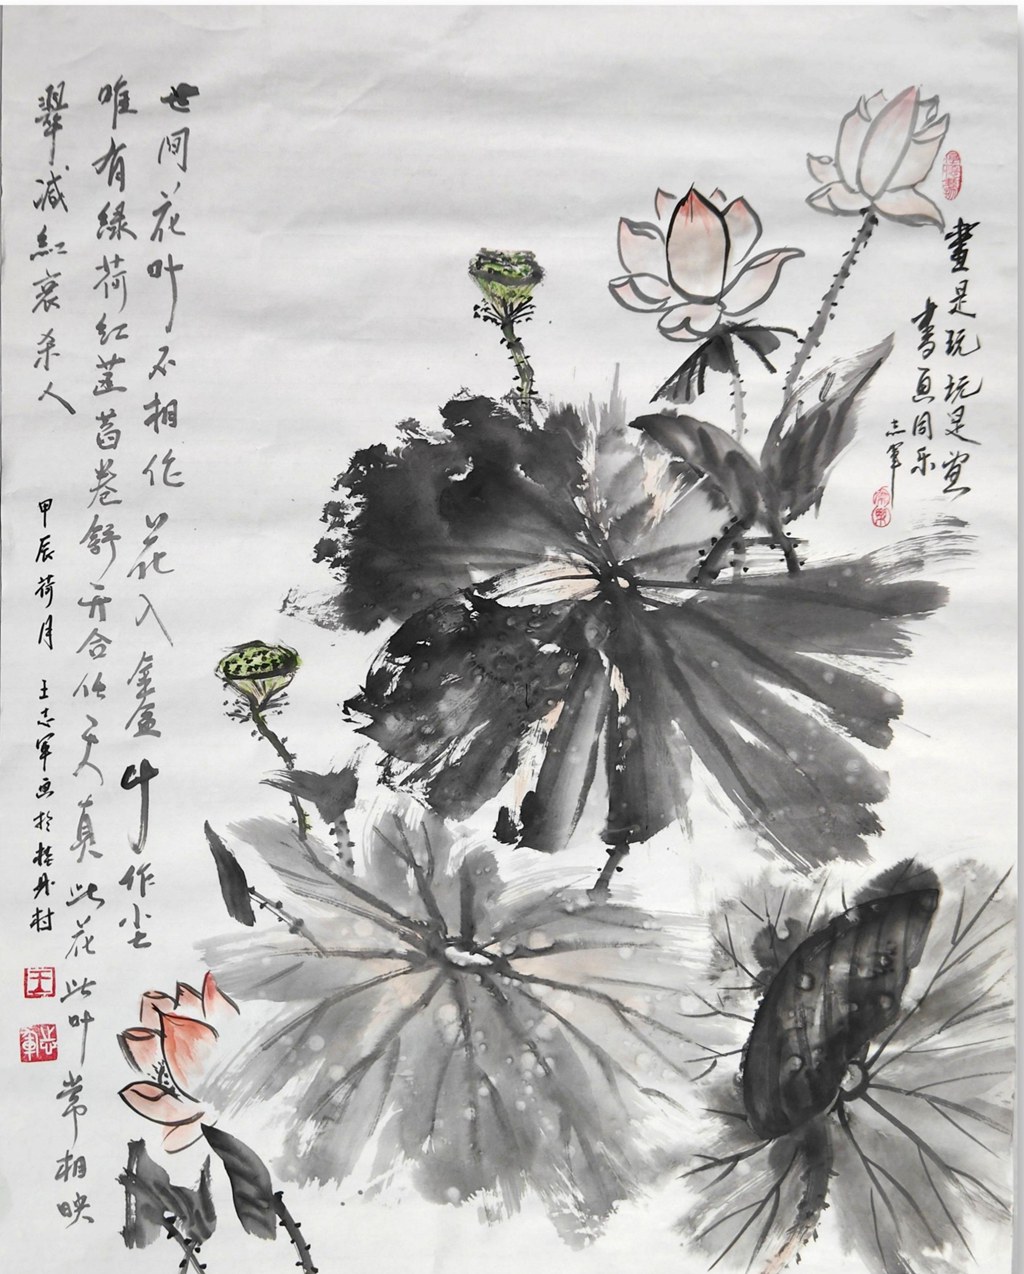 畫是玩玩是画
書画同乐
志军
世间花叶不相伦花入金盆叶作尘
唯有綠荷红菡萏卷舒开合任天真此花此叶常相映
翠减紅衰杀人
甲辰荷月 王志军画於村
王
志军